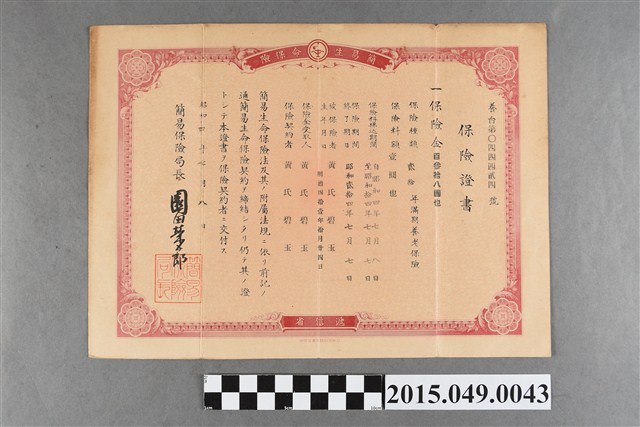 簡易生命保險
養台第〇四四四貳四號
保險證書
一保險金 八圓也
保險種類 貳拾年滿期養老保險
保險料額 壹圓也
保險料拂込期間 自昭和四年七月八日
至昭和貳拾四年七月七日
保險期間ノ終了期日 昭和貳拾四年七月七日
被保險者 黃氏碧玉
生年月日 明治四拾壹年拾月廿四日
保險金受取人 黃氏碧玉
保險契約者 黃氏碧玉
簡易生命保險法及其ノ附屬法規ニ依リ前記ノ
通簡易生命保險契約ヲ締結シタリ仍テ其ノ證
トシテ本證書ヲ保險契約者ニ交付ス
昭和四年七月八日
簡易保險局長
遞信省
2015.049.0043